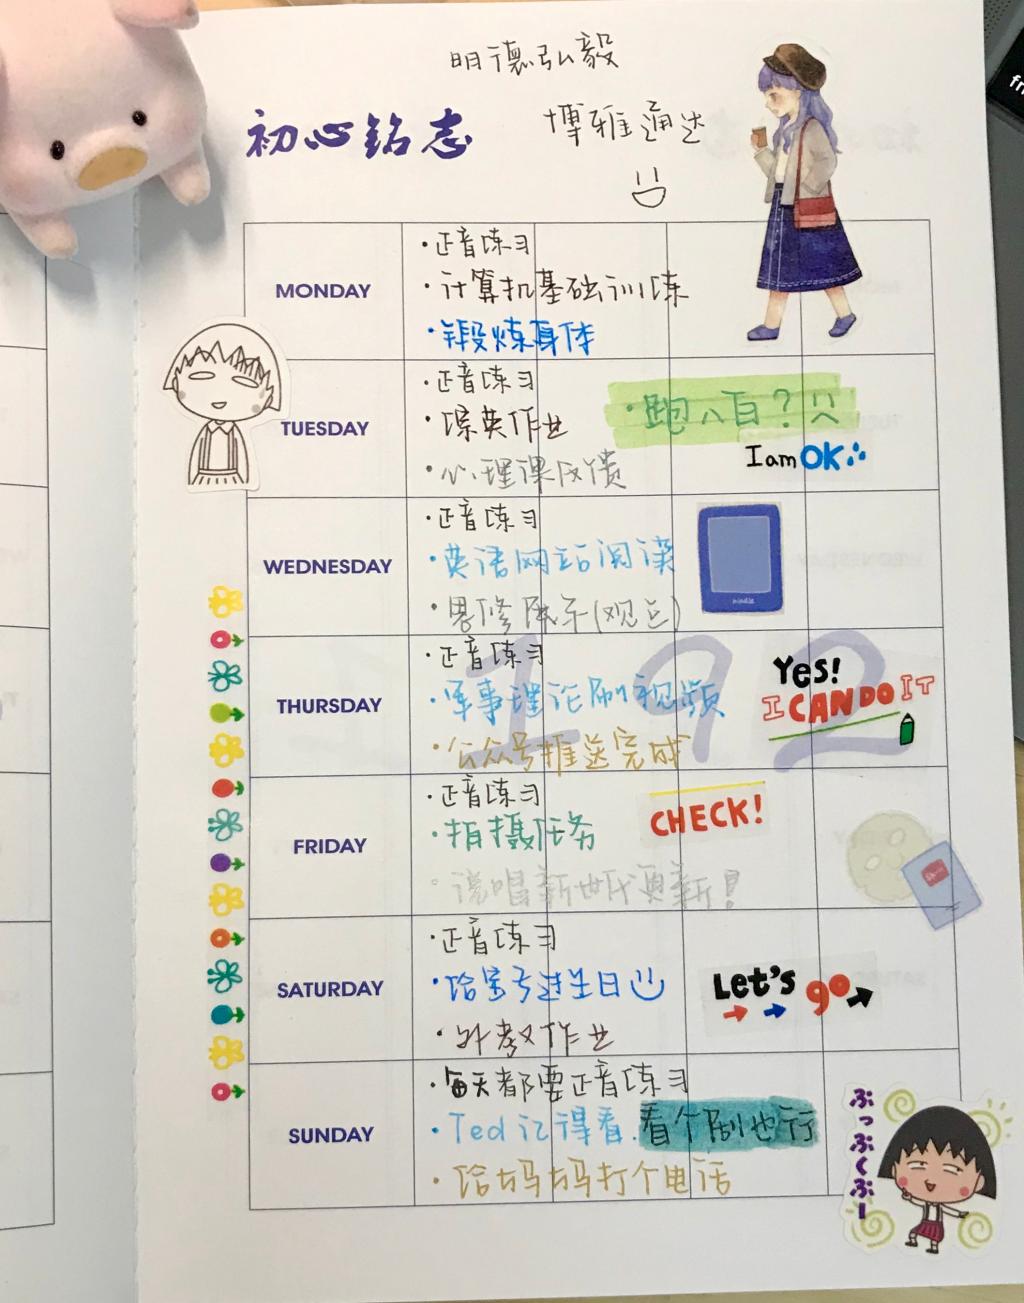 明德弘毅
初心铭志
博雅通达
MONDAY
·正音练习
·计算机基础训练
·锻炼身体
TUESDAY
·正音练习
·综英作业
·心理课反馈
·跑八百？
I am OK
WEDNESDAY
·正音练习
·英语网站阅读
·思修展示(观点)
kindle
THURSDAY
·正音练习
·军事理论刷视频
·公众号推送完成
192
Yes!
I CAN DO IT
FRIDAY
·正音练习
·拍摄任务
·说唱新世代更新！
CHECK!
SATURDAY
·正音练习
·给宝号过生日
·外教作业
Let's go
SUNDAY
·每天都要正音练习
·Ted记得看.看个剧也行
·给妈妈打个电话
ぷっぷくぷー